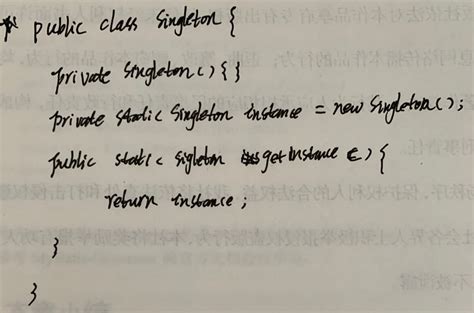 public class Singleton {
private Singleton() { }
private static Singleton instance = new Singleton();
public static Sigleton getInstance () {
return instance ;
}
}